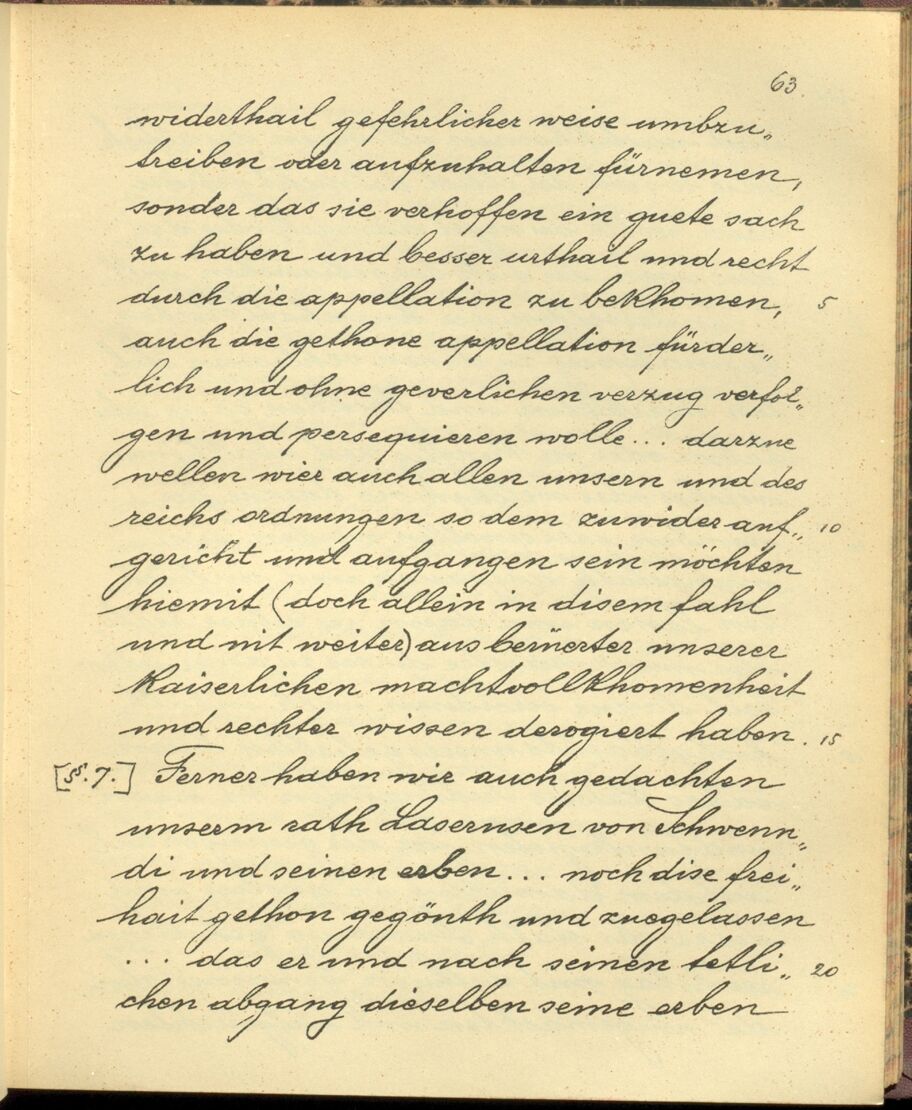 63.
widerthail gefehrlicher weise umbzu„
treiben oder aufzuhalten fürnemen,
sonder das sie verhoffen ein guete sach
zu haben und besser urthail und recht
durch die appellation zu bekhomen, 5
auch die gethone appellation fürder„
lich und ohne geverlichen verzug verfol„
gen und persequieren wolle... darzue
wellen wier auch allen unsern und des
reichs ordnungen so dem zuwider auf„ 10
gericht und aufgangen sein möchten
hiemit (doch allein in disem fahl
und nit weiter) aus berüerter unserer
Kaiserlichen machtvollkhomenheit
und rechter wissen derogiert haben. 15
[§. 7.] Ferner haben wir auch gedachten
unserm rath Lasarusen von Schwenn„
di und seinen erben... noch dise frei„
hait gethon gegönth und zuegelassen
... das er und nach seinen tetli„ 20
chen abgang dieselben seine erben